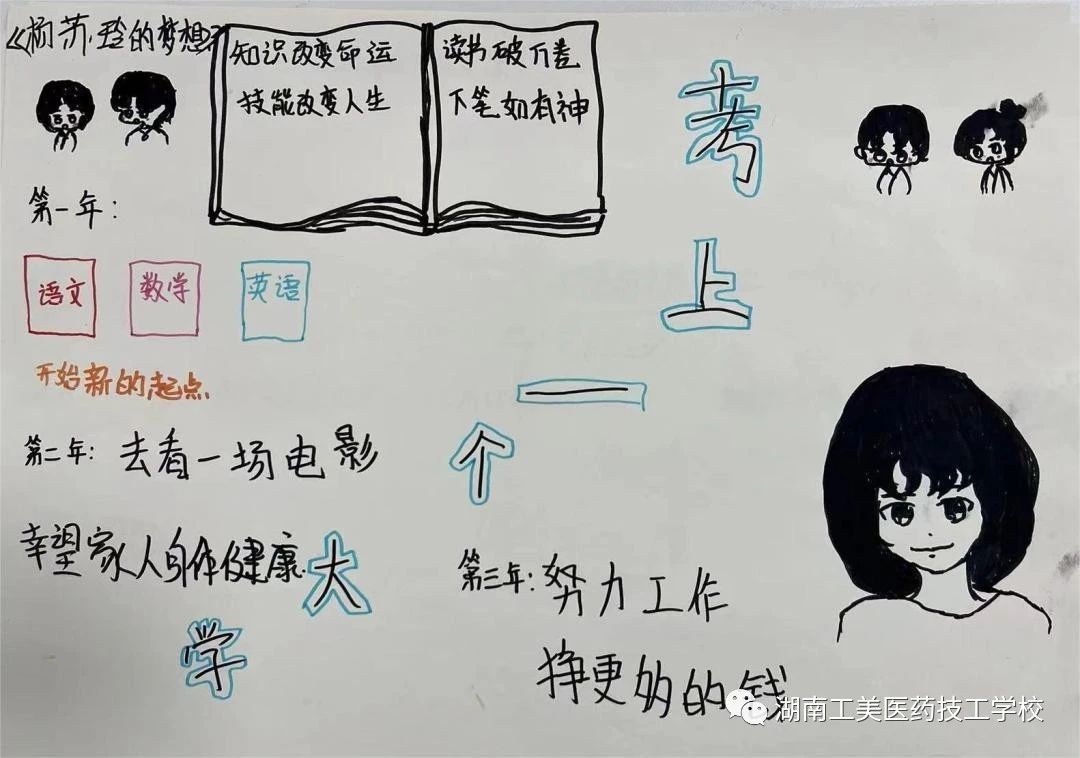 《杨苏玲的梦想》
知识改变命运
技能改变人生
读书破万卷
下笔如有神
第一年：
语文
数学
英语
开始新的起点
第二年：去看一场电影
幸望家人身体健康
第三年：努力工作
挣更多的钱
考
上
一
个
大
学
湖南工美医药技工学校